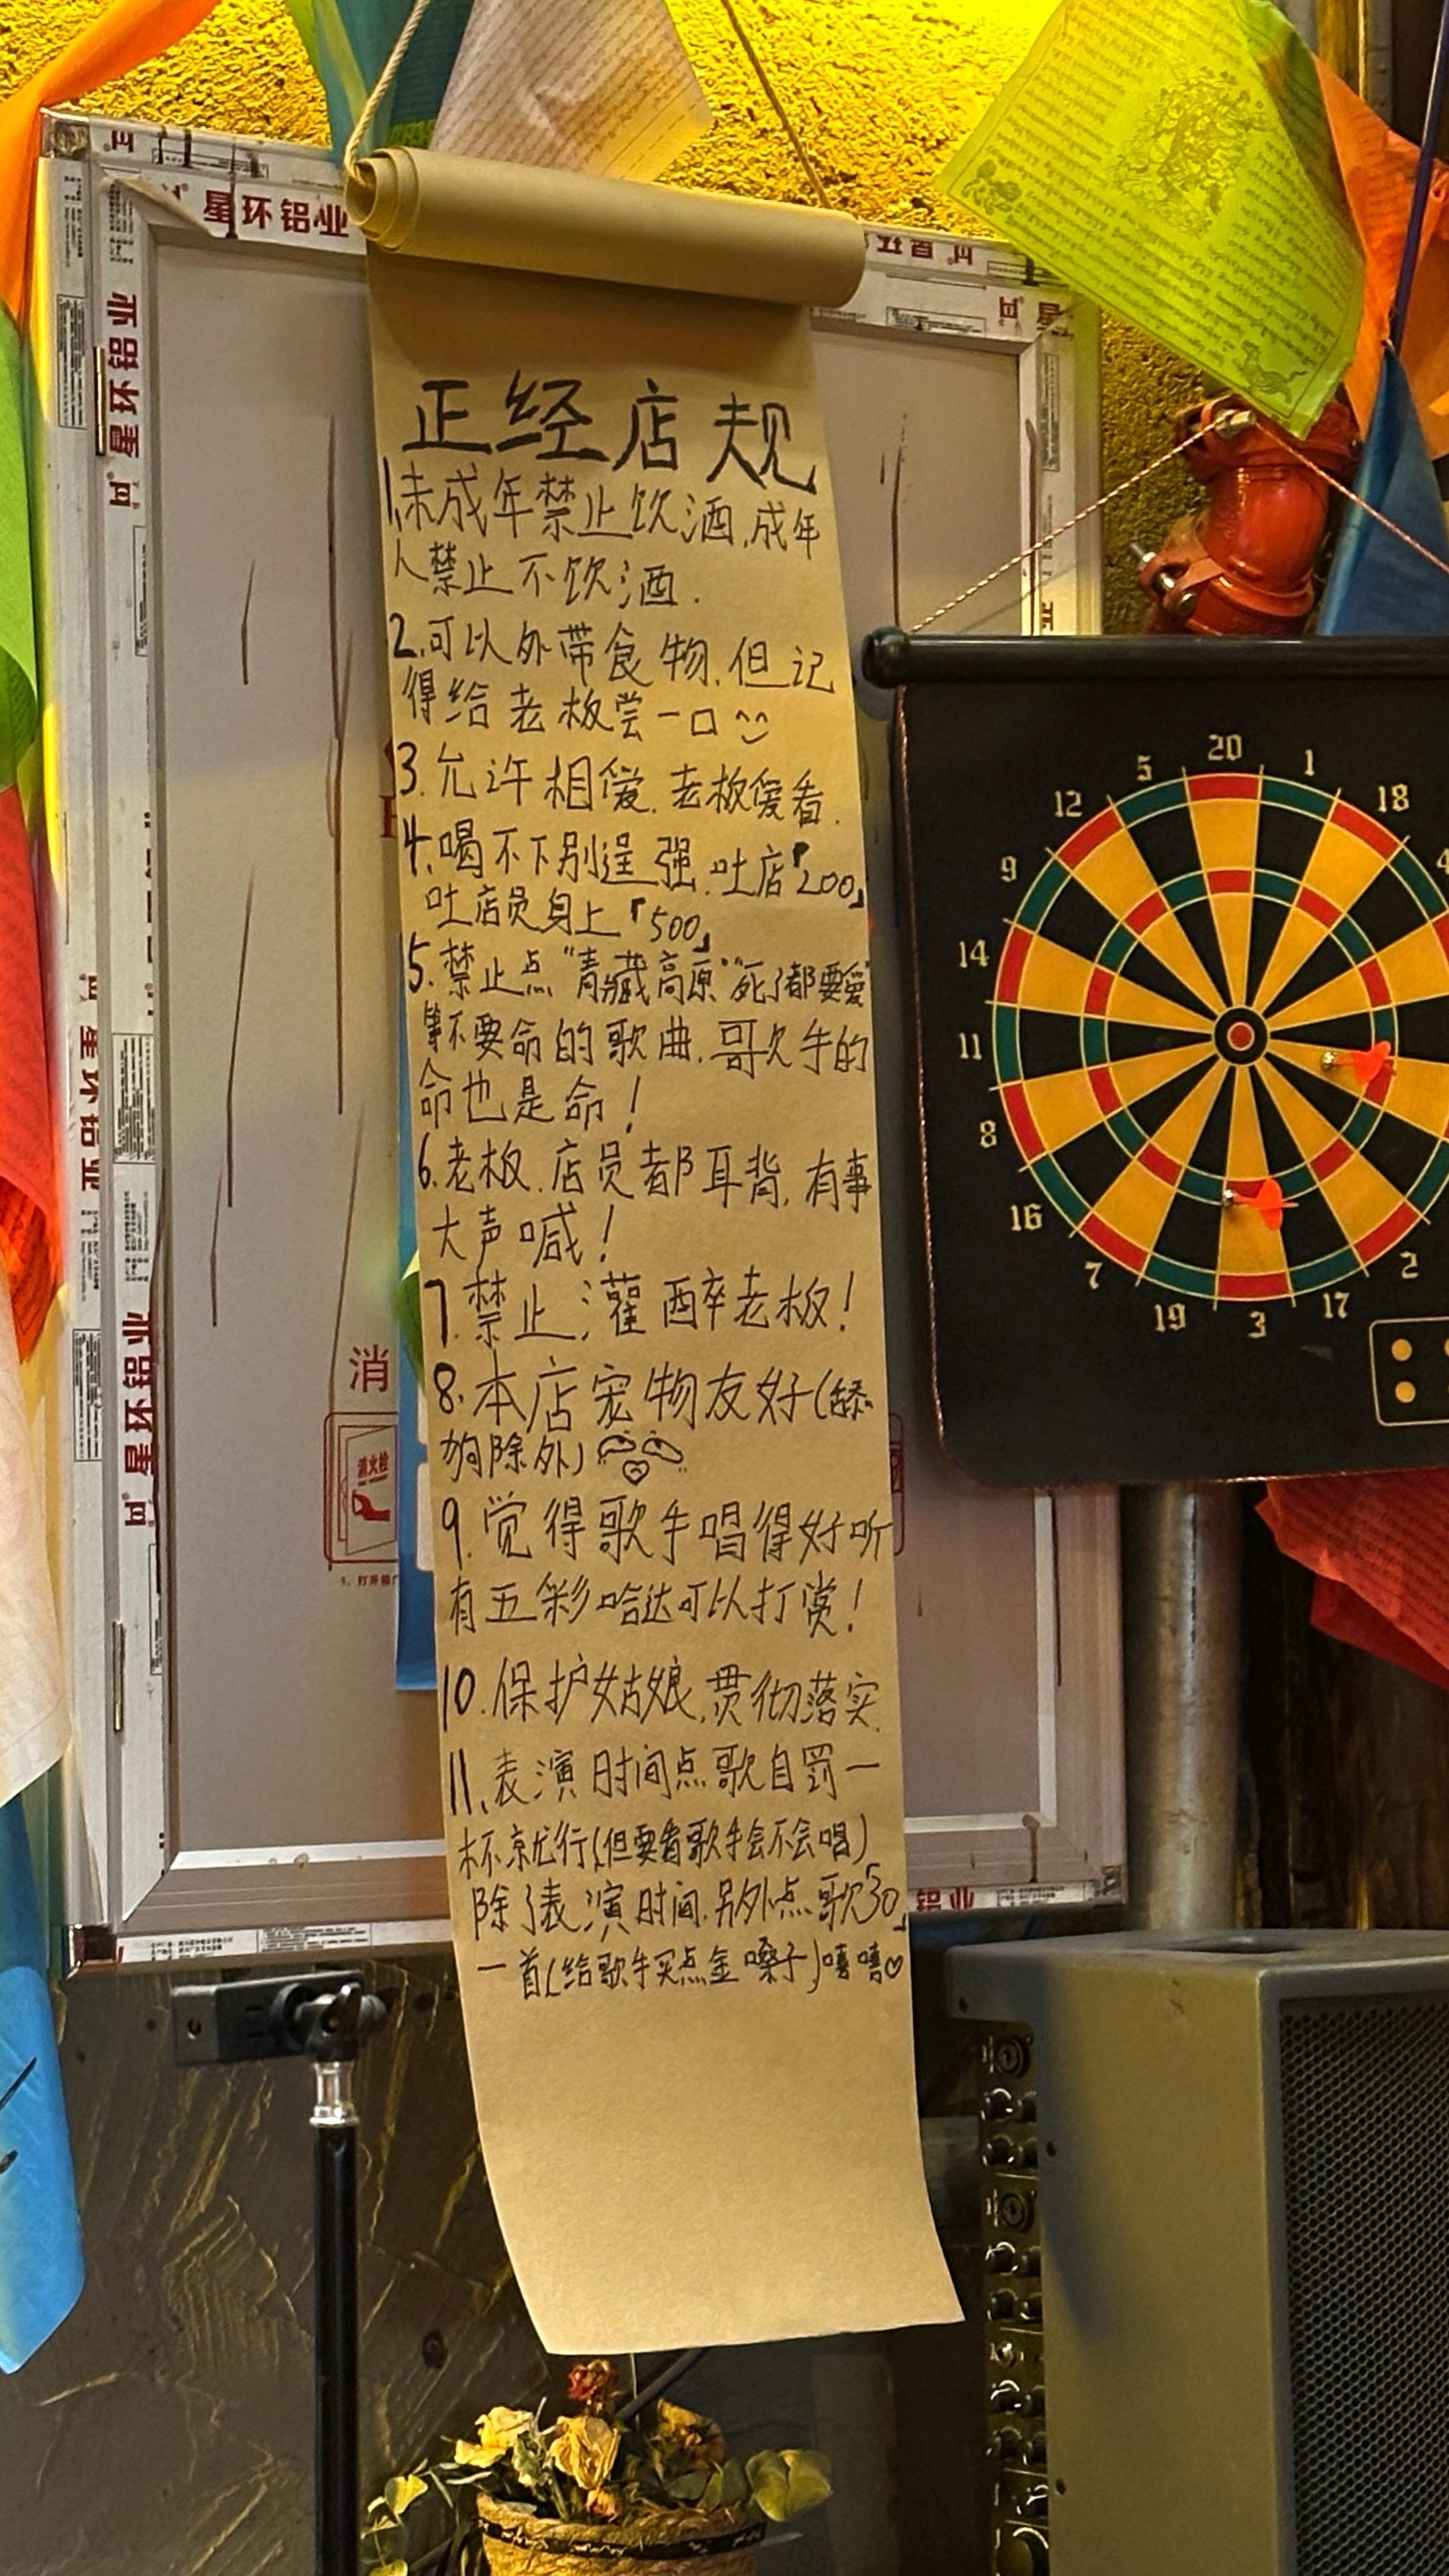 星环铝业
星环铝业
星环铝业
星环铝业
星环铝业
铝业
正经店规
1.未成年禁止饮酒,成年
人禁止不饮酒.
2.可以外带食物.但记
得给老板尝一口
3.允许相爱.老板爱看.
4.喝不下别逞强.吐店「200」
吐店员身上「500」
5.禁止点“青藏高原”“死了都要爱”
等不要命的歌曲.歌手的
命也是命!
6.老板.店员都耳背.有事
大声喊!
7.禁止灌醉老板!
8.本店宠物友好(舔
狗除外)
9.觉得歌手唱得好听
有五彩哈达可以打赏!
10.保护姑娘,贯彻落实.
11、表演时间点歌自罚一
杯就行(但要看歌手会不会唱)
除了表演时间.另外点歌「30」
一首(给歌手买点金嗓子)嘻嘻♡
消
消火栓
20
1
18
5
12
9
14
11
8
16
7
19
3
17
2